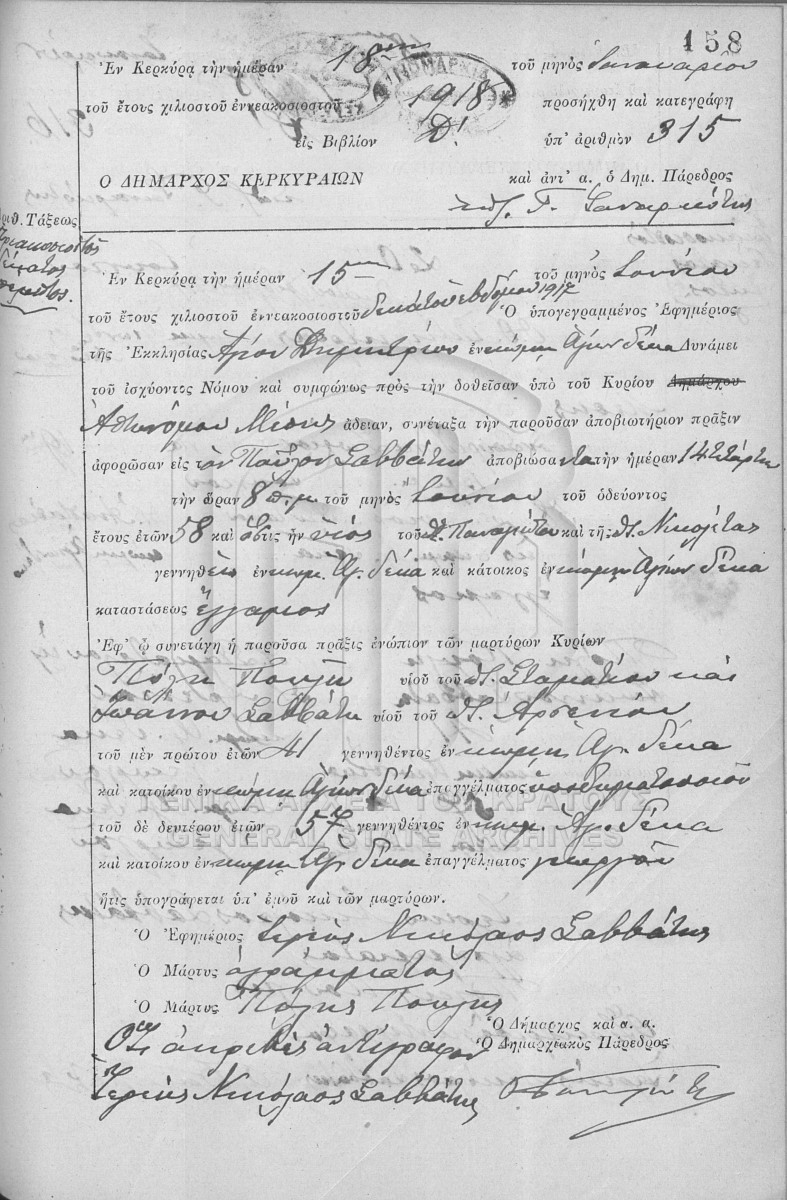 158
Ἐν Κερκύρᾳ τὴν ἡμέραν 18ην τοῦ μηνὸς Ἰανουαρίου
τοῦ ἔτους χιλιοστοῦ ἐννεακοσιοστοῦ 1918 προσήχθη καὶ κατεγράφη
εἰς Βιβλίον Δ! ὑπ' ἀριθμὸν 315
Ο ΔΗΜΑΡΧΟΣ ΚΕΡΚΥΡΑΙΩΝ καὶ ἀντ' α. ὁ Δημ. Πάρεδρος
Γ.
ριθ. Τάξεως
Τριακοσιοστὸς
δέκατος
πέμπτος.
Ἐν Κερκύρᾳ τὴν ἡμέραν 15ην τοῦ μηνὸς Ἰουνίου
τοῦ ἔτους χιλιοστοῦ ἐννεακοσιοστοῦ δεκάτου ἑβδόμου 1917 Ὁ ὑπογεγραμμένος Ἐφημέριος
τῆς Ἐκκλησίας Ἁγίου Δημητρίου ἐν κώμῃ Ἁγίων Δέκα Δυνάμει
τοῦ ἰσχύοντος Νόμου καὶ συμφώνως πρὸς τὴν δοθεῖσαν ὑπὸ τοῦ Κυρίου Δημάρχου
Ἀστυνόμου Μέσης ἄδειαν, συνέταξα τὴν παροῦσαν ἀποβιωτήριον πρᾶξιν
ἀφορῶσαν εἰς τὸν Παῦλον Σαββάτην ἀποβιώσαντα τὴν ἡμέραν 14 τετάρτην
τὴν ὥραν 8 π.μ τοῦ μηνὸς Ἰουνίου τοῦ ὁδεύοντος
ἔτους ἐτῶν 58 καὶ ὅστις ἦν υἱὸς τοῦ π. Παναγιώτου καὶ τῆς π. Νικολέτας
γεννηθεὶς ἐν κώμ. Ἁγ. Δέκα καὶ κάτοικος ἐν κώμῃ Ἁγίων Δέκα
καταστάσεως ἔγγαμος
Ἐφ' ᾧ συνετάγη ἡ παροῦσα πρᾶξις ἐνώπιον τῶν μαρτύρων Κυρίων
Πόλη Πουλῆ υἱοῦ τοῦ π. Σταματίου καὶ
Ἰωάννου Σαββάτη υἱοῦ τοῦ π. Ἀρσενίου
τοῦ μὲν πρώτου ἐτῶν 41 γεννηθέντος ἐν κώμῃ Ἁγ. Δέκα
καὶ κατοίκου ἐν κώμῃ Ἁγίων Δέκα ἐπαγγέλματος ὑποδηματοποιοῦ
ΓΕΝΙΚΑ ΑΡΧΕΙΑ ΤΟΥ ΚΡΑΤΟΥΣ
τοῦ δὲ δευτέρου ἐτῶν 57 γεννηθέντος ἐν κώμ. Ἁγ. Δέκα
GENERAL STATE ARCHIVES
καὶ κατοίκου ἐν κώμῃ Ἁγ. Δέκα ἐπαγγέλματος γεωργοῦ
ἥτις ὑπογράφεται ὑπ' ἐμοῦ καὶ τῶν μαρτύρων.
Ὁ Ἐφημέριος Ἱερεὺς Νικόλαος Σαββάτης
Ὁ Μάρτυς ἀγράμματος
Ὁ Μάρτυς Πόλης Πουλῆς
Ὁ Δήμαρχος καὶ α. α.
Ὁ Δημαρχειακὸς Πάρεδρος
Ὅτι ἀκριβὲς ἀντίγραφον
Ἱερεὺς Νικόλαος Σαββάτης